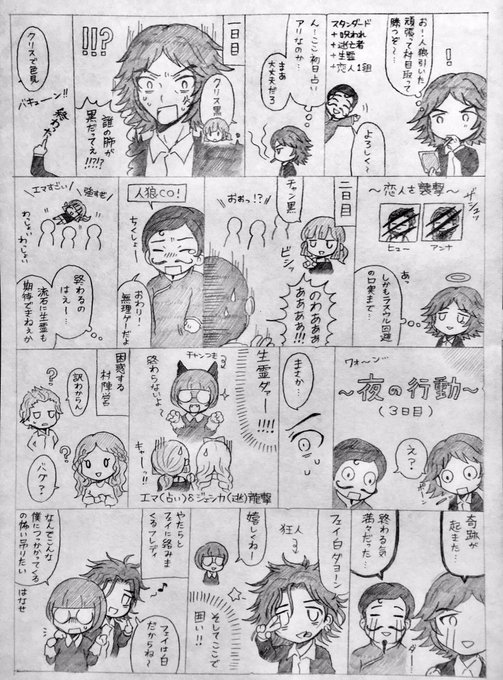 おー！人狼引いた
頑張って対目取って
勝つぞ〜…
！
スタンダード
+呪われ
+逃亡者
+生霊
+恋人1組
よろしく〜
ん…ここ初日占い
アリなのか…
まぁ
大丈夫だろ
一日目
クリス黒
！！？
誰の肺が
黒だってぇ
！！？！？
クリスで色見
バキューン！！
〜恋人を襲撃〜
ザシュッ
ヒュー
アンナ
あっ
しかもラスウル回避
の口実まで…
二日目
チャン黒
ビシッ
おぉっ！？
のわあああ
ああああ！！！
人狼CO！
ちくしょー
おわり！
無理ゲーだよ
エマすごい
強すぎ
わっしょい
わっしょい
終わるの
はえー…
流石に生霊も
期待できねぇか
ワォーン
〜夜の行動〜
（3日目）
え？
まさか…
生霊ダァー！！！
チャンつきヨ
終わらないよ〜
キャーッ！！
エマ(占い)&ジェシカ(逃)襲撃
困惑する
村陣営
？
訳わからん
？
バケ？
奇跡が
起きた…
終わる気
満々だった…
フェイ白ダヨーン
狂人
ヨ
嬉しくね
そしてここで
囲い！！
やたらと
フェイに絡みま
くるフレディ
♪
フェイは白
だからね〜
なんでこんな
僕につっかかってくる
の怖い吊りたい
はなせ